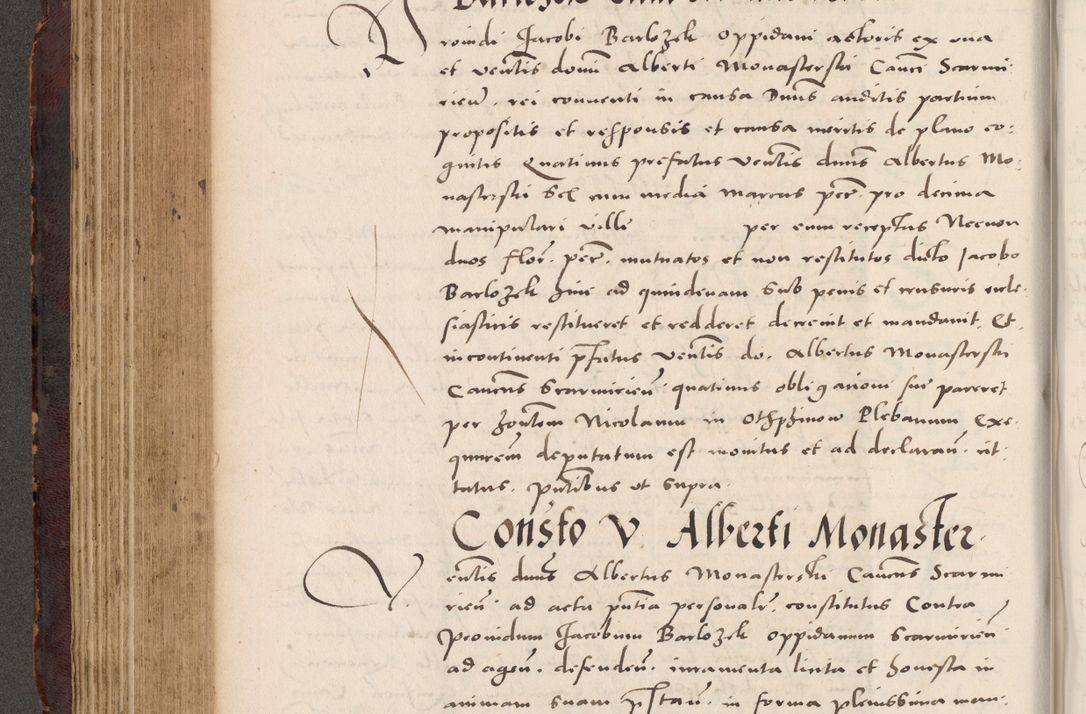 roindi Jacobi Barlozek oppidani actoris ex una
et ventlis domini Alberti Monasterski Canci Scarmi
rien. rei conventi in causa Dnus auditis partium
propositis et responsis et causa meritis de plano co:
gnitis Quatinus prefatus Ventlis dnus Albertus Mo:
nasterski sex cum media marcas per. pro decima
manipulari ville per eum receptas Necnon
duos flor. per. mutuatos et non restitutos dicto Jacobo
Barlozek hinc ad quindenam sub penis et censuris eccle:
siasticis restitueret et redderet decrevit et mandavit. Et
incontinenti pfatus Ventlis do. Albertus Monasterski
Cancus Scarmirien. quatinus obligationi sue pareret
per honlem Nicolaum in Othphinow Plebanum Exe:
quutorem deputatum est monitus et ad declaran. cit:
tatus. pntibus ut supra.
Consto V. Alberti Monaster.
Ventlis dnus Albertus Monasterski Cancus Scarmi
rien. ad acta pntia personalr. constitutus Contra
Providum Jacobum Barlozek oppidanum Scarmirien
ad agen. defenden. iuramenta licita et honesta in
animam suam pstan. in forma plenissima man: